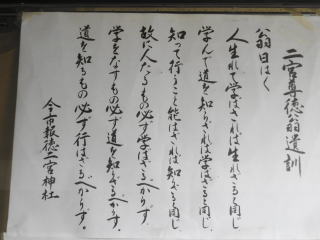 二宮尊徳翁遺訓
翁曰はく
人生れて学ばざれば生れざると同じ
学んで道を知らざれば学ばざると同じ
知って行うこと能はざれば知らざると同じ
故に人たるもの必ず学ばざるべからず。
学をなすもの必ず道を知らざるべからず。
道を知るもの必ず行はざるべからず。
今市報徳二宮神社